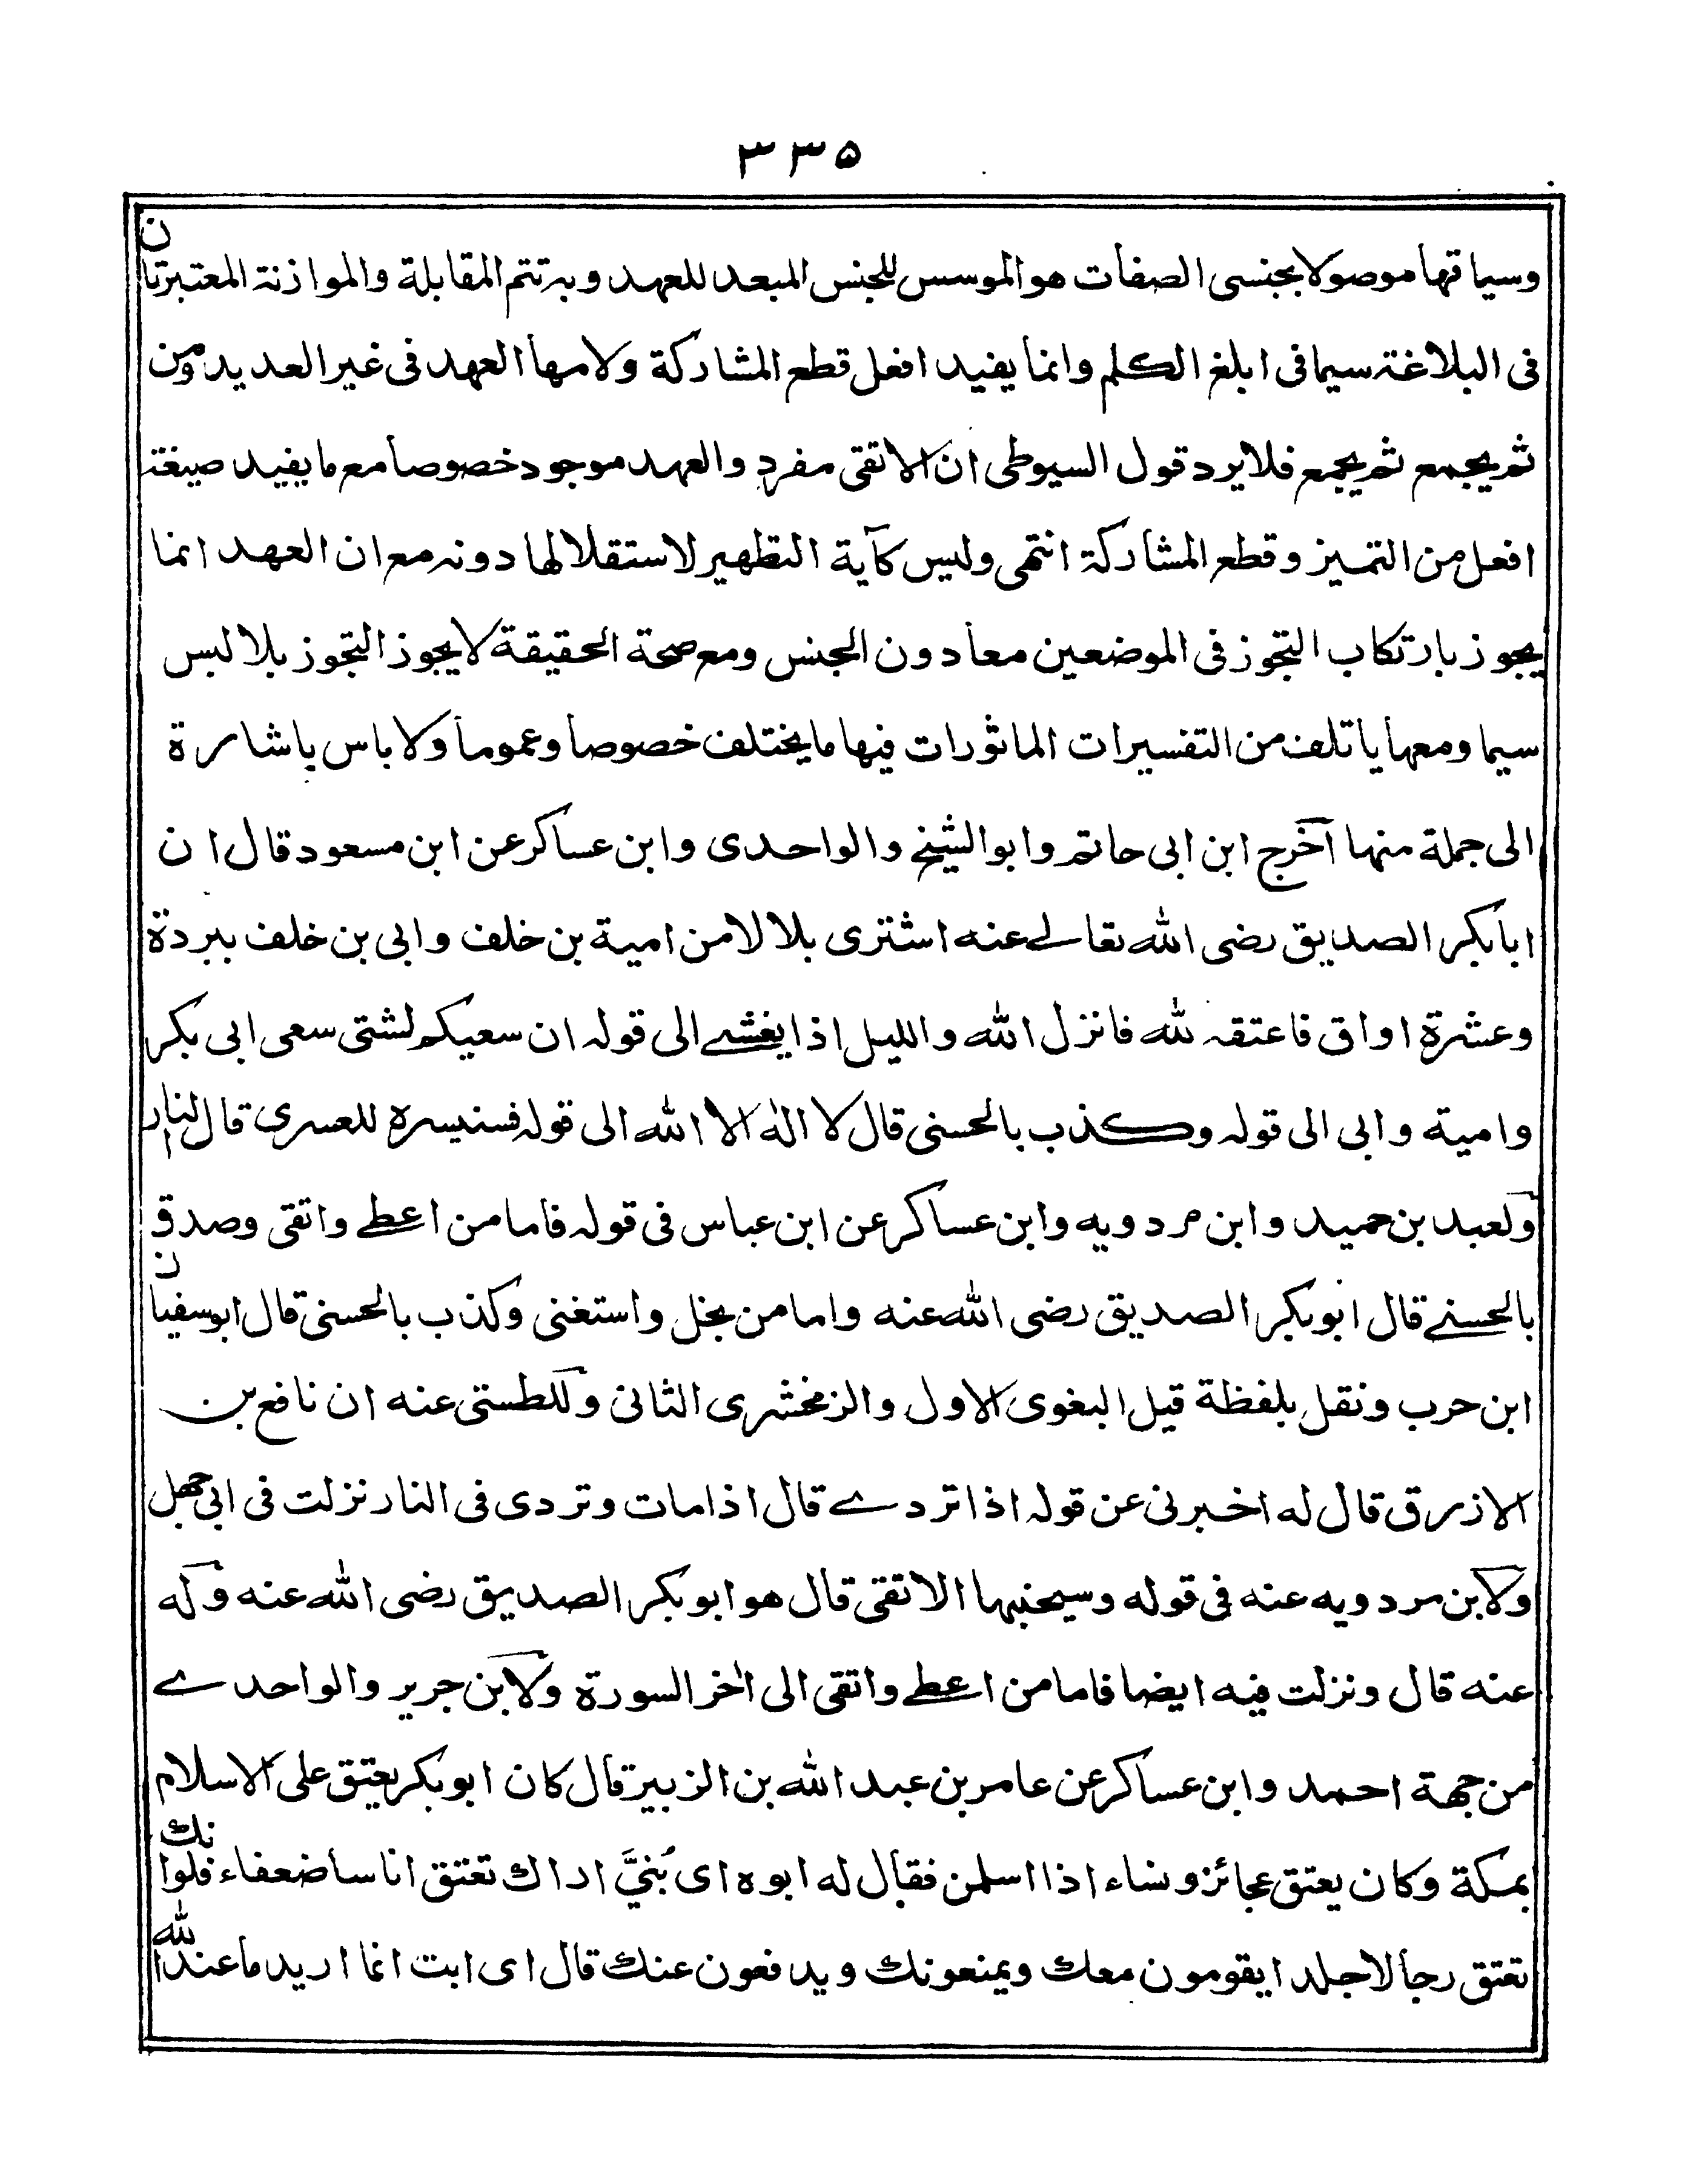 ٣٣٥
وسياقها موصولا بجنسى الصفات هو الموسس للجنس المبعد للعهد وبه تتم المقابلة والموازنة المعتبرتان
فى البلاغة سيما فى ابلغ الكلم وانما يفيد افعل قطع المشاركة ولامها العهد فى غير العديد ومن
ثم يجمع ثم يجمع فلا يرد قول السيوطى ان الاتقى مفرد والعهد موجود خصوصا مع ما يفيد صيغة
افعل من التميز وقطع المشاركة انتهى وليس كآية التطهير لاستقلالها دونه مع ان العهد انما
يجوز بارتكاب التجوز فى الموضعين معا دون الجنس ومع صحة الحقيقة لا يجوز التجوز بلا لبس
سيما ومعها ياتلف من التفسيرات الماثورات فيها ما يختلف خصوصا وعموما ولا باس باشارة
الى جملة منها اخرج ابن ابى حاتم وابو الشيخ والواحدى وابن عساكر عن ابن مسعود قال ان
ابا بكر الصديق رضى الله تعالے عنه اشترى بلالا من امية بن خلف وابى بن خلف ببردة
وعشرة اواق فاعتقه لله فانزل الله والليل اذا يغشے الى قوله ان سعيكم لشتى سعى ابى بكر
وامية وابى الى قوله وكذب بالحسنى قال لا اله الا الله الى قوله فسنيسره للعسرى قال النار
ولعبد بن حميد وابن مردويه وابن عساكر عن ابن عباس فى قوله فاما من اعطے واتقى وصدق
بالحسنے قال ابو بكر الصديق رضى الله عنه واما من بخل واستغنى وكذب بالحسنى قال ابو سفيان
ابن حرب ونقل بلفظة قيل البغوى الاول والزمخشرى الثانى وللطستى عنه ان نافع بن
الازرق قال له اخبرنى عن قوله اذا تردے قال اذا مات وتردى فى النار نزلت فى ابى جهل
ولابن مردويه عنه فى قوله وسيجنبها الاتقى قال هو ابو بكر الصديق رضى الله عنه وله
عنه قال ونزلت فيه ايضا فاما من اعطے واتقى الى اٰخر السورة ولابن جرير والواحدے
من جهة احمد وابن عساكر عن عامر بن عبد الله بن الزبير قال كان ابو بكر يعتق على الاسلام
بمكة وكان يعتق عجائز ونساء اذا اسلمن فقال له ابوه اى بُنيَّ اراك تعتق اناسا ضعفاء فلو انك
تعتق رجالا جلدا يقومون معك ويمنعونك ويدفعون عنك قال اى ابت انما اريد ما عند الله